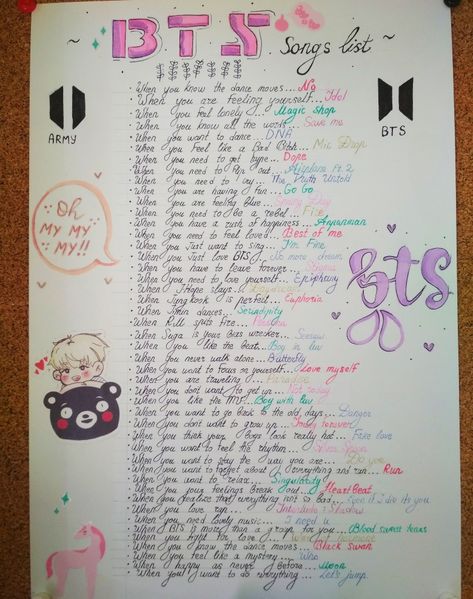 ~ BTS Songs list ~
ARMY
BTS
Oh
MY MY
MY!!
bts
When you know the dance moves... No
When you are feeling yourself... Idol
When you feel lonely... Magic shop
When you know all the words... Save me
When you want to dance... DNA
When you feel like a Bad Bitch... Mic Drop
When you need to get hype... Dope
When you need to Pop Out... Airplane Pt. 2
When you need to cry... The Truth Untold
When you are having fun... Go Go
When you are feeling blue... Spring Day
When you need to be a rebel... Fire
When you have a rush of happiness... Anpanman
When you need to feel loved... Best of me
When you just want to sing... I'm Fine
When you just love BTS... No more dream
When you have to leave forever...
When you need to love yourself... Epiphany
When J Hope slays...
When Jungkook is perfect... Euphoria
When Jimin dances... Serendipity
When RM spits fire... Persona
When Suga is your bias wrecker... Seesaw
When you like the beat... Boy in luv
When you never walk alone... Butterfly
When you want to focus on yourself... Love myself
When you are traveling... Paradise
When you don't want to get up... Not today
When you like the MV... Boy with luv
When you want to go back to the old days... Danger
When you don't want to grow up... Young forever
When you think your boys look really hot... Fake love
When you want to feel the rhythm...
When you want to stay the way you are... Do you
When you want to forget about everything and run... Run
When you want to relax... Singularity
When your feelings break out... HeartBeat
When you realize that everything not so bad...
When you love run... Interlude: Shadow
When you need lovely music... I need u
When BTS is more than a group for you... Blood sweat tears
When you fight for love...
When you know the dance moves... Black Swan
When you feel like a mystery... Who
When happy as never before... Moon
When you want to do everything... Let's jump